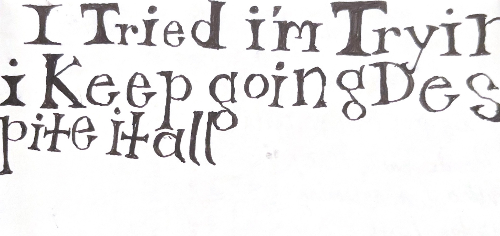 I Tried i'm Tryin
i Keep going Des
pite it all